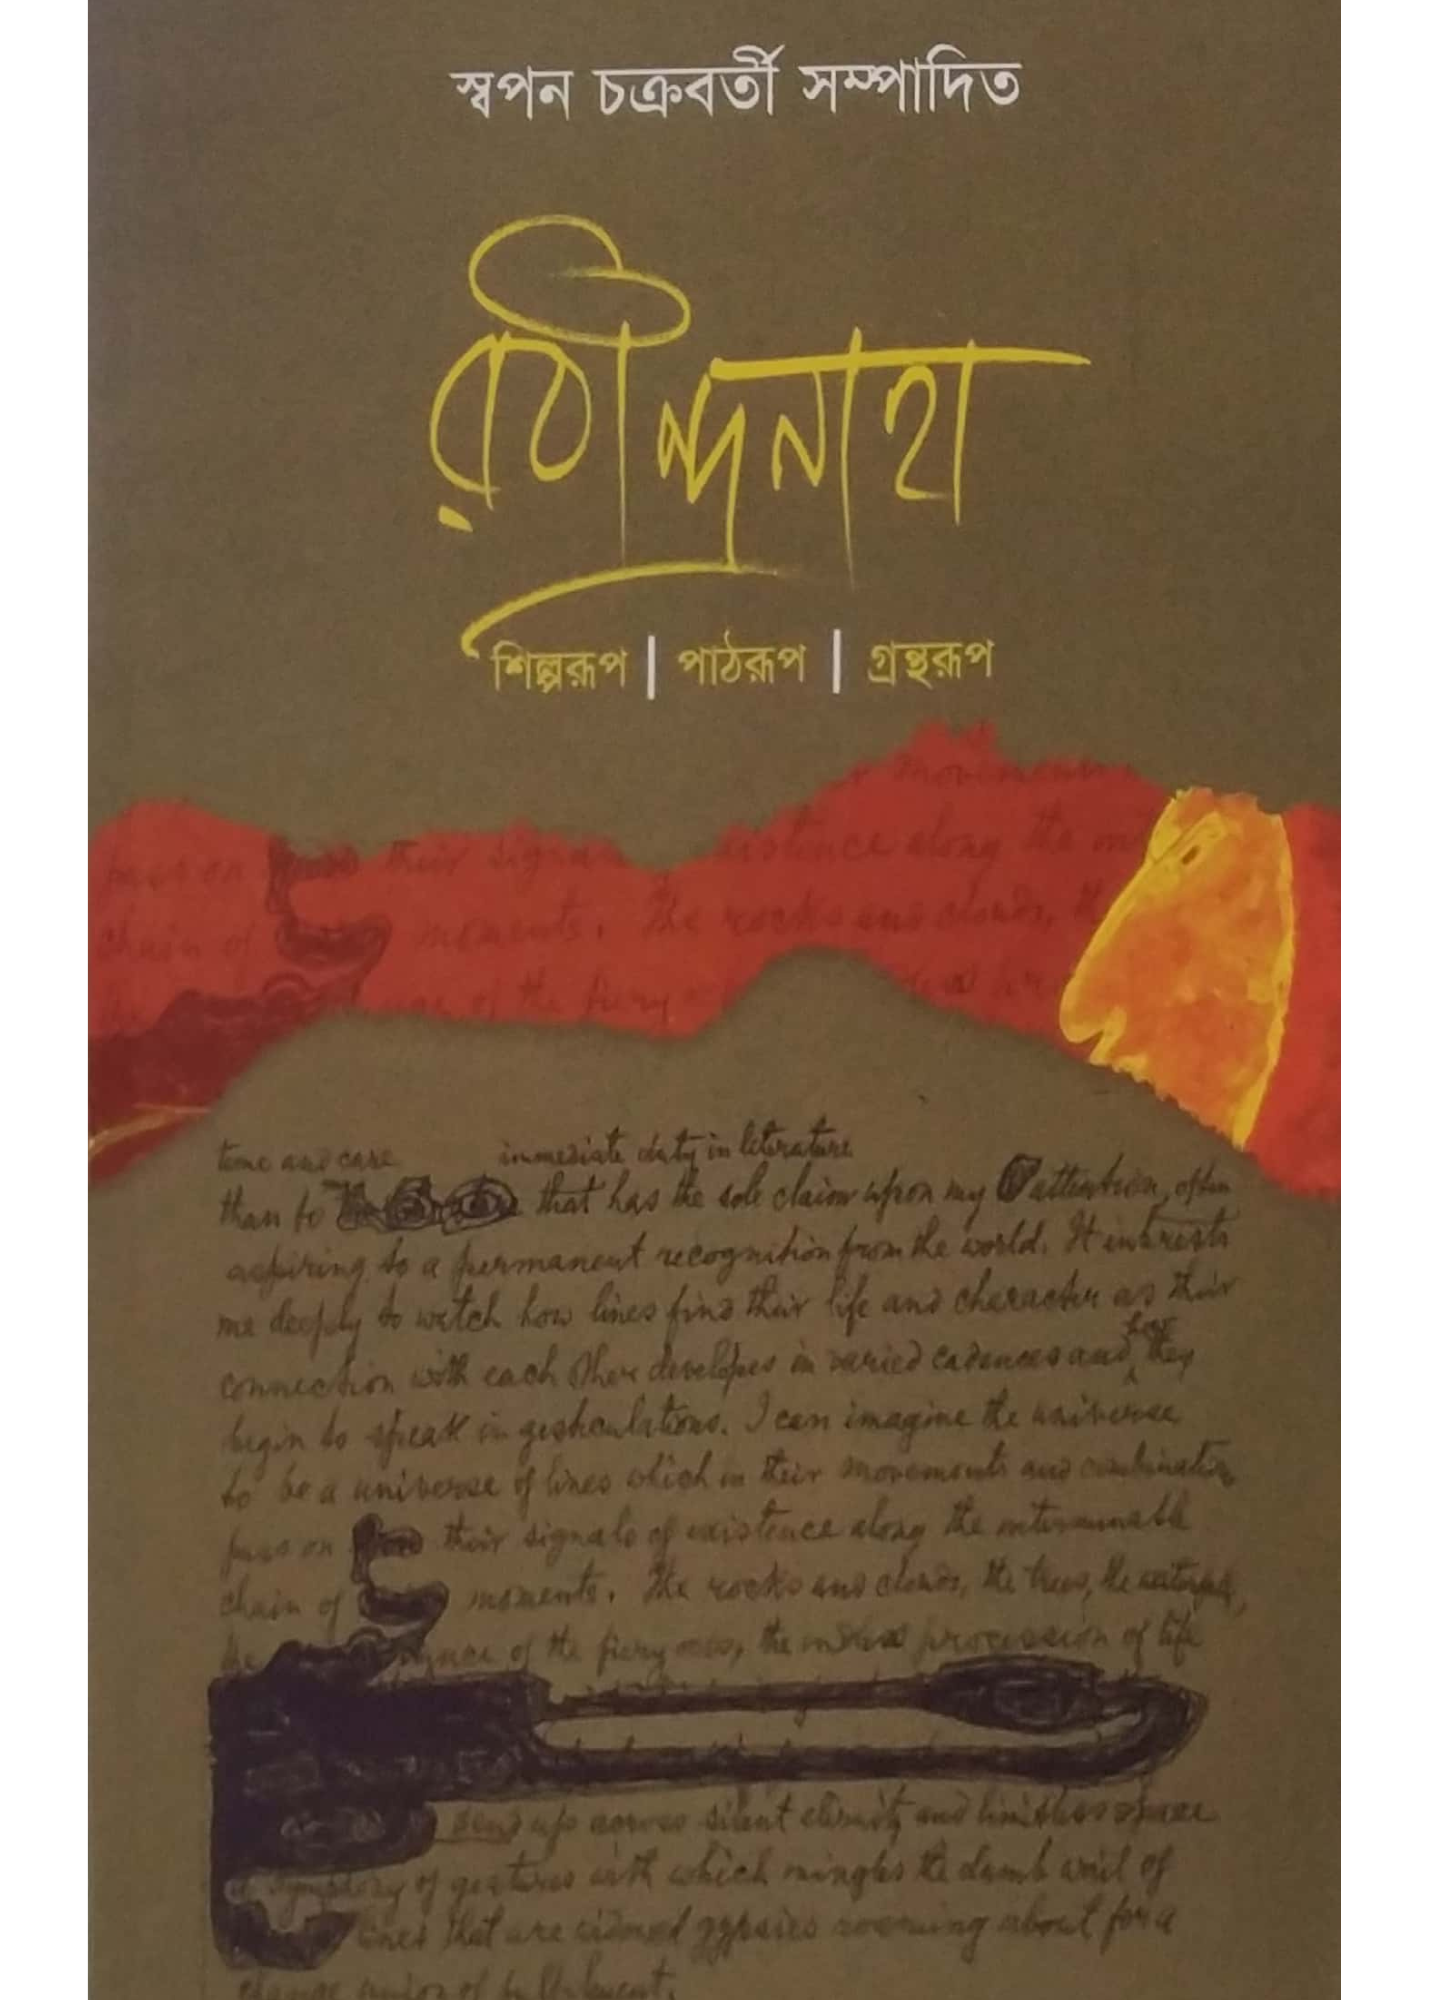 স্বপন চক্রবর্তী সম্পাদিত
রবীন্দ্রনাথ
শিল্পরূপ | পাঠরূপ | গ্রন্থরূপ
movements
pass on their signals existence along the
chain of moments. The rocks and clouds,
of the fiery
time and care immediate duty in literature
than to that has the sole claim upon my attention, often
aspiring to a permanent recognition from the world. It interests
me deeply to watch how lines find their life and character as their
connection with each other developes in varied cadences and how they
begin to speak in gesticulations. I can imagine the universe
to be a universe of lines which in their movements and combinations
pass on their signals of existence along the interminable
chain of moments. The rocks and clouds, the trees, the waterfalls,
the of the fiery orbs, the endless procession of life
send up across silent eternity and limitless space
a symphony of gestures with which mingles the dumb wail of
lines that are widowed gypsies roaming about for a
chance union of fulfilment.